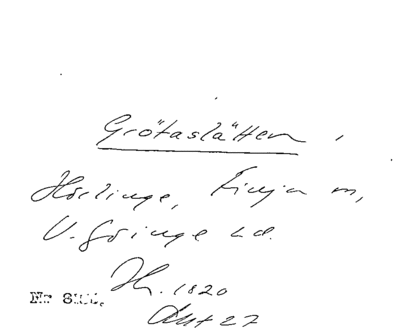 Grötaslätten,
Hörlinge, Finja sn,
V. Göinge hd.
Hr. 1820
Nr
27